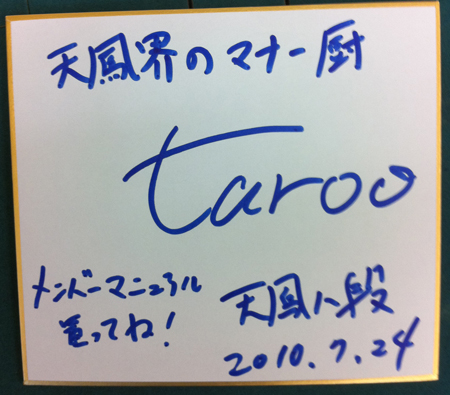 天鳳界のマナー厨
taroo
メンバーマニュアル
買ってね!
天鳳八段
2010.7.24